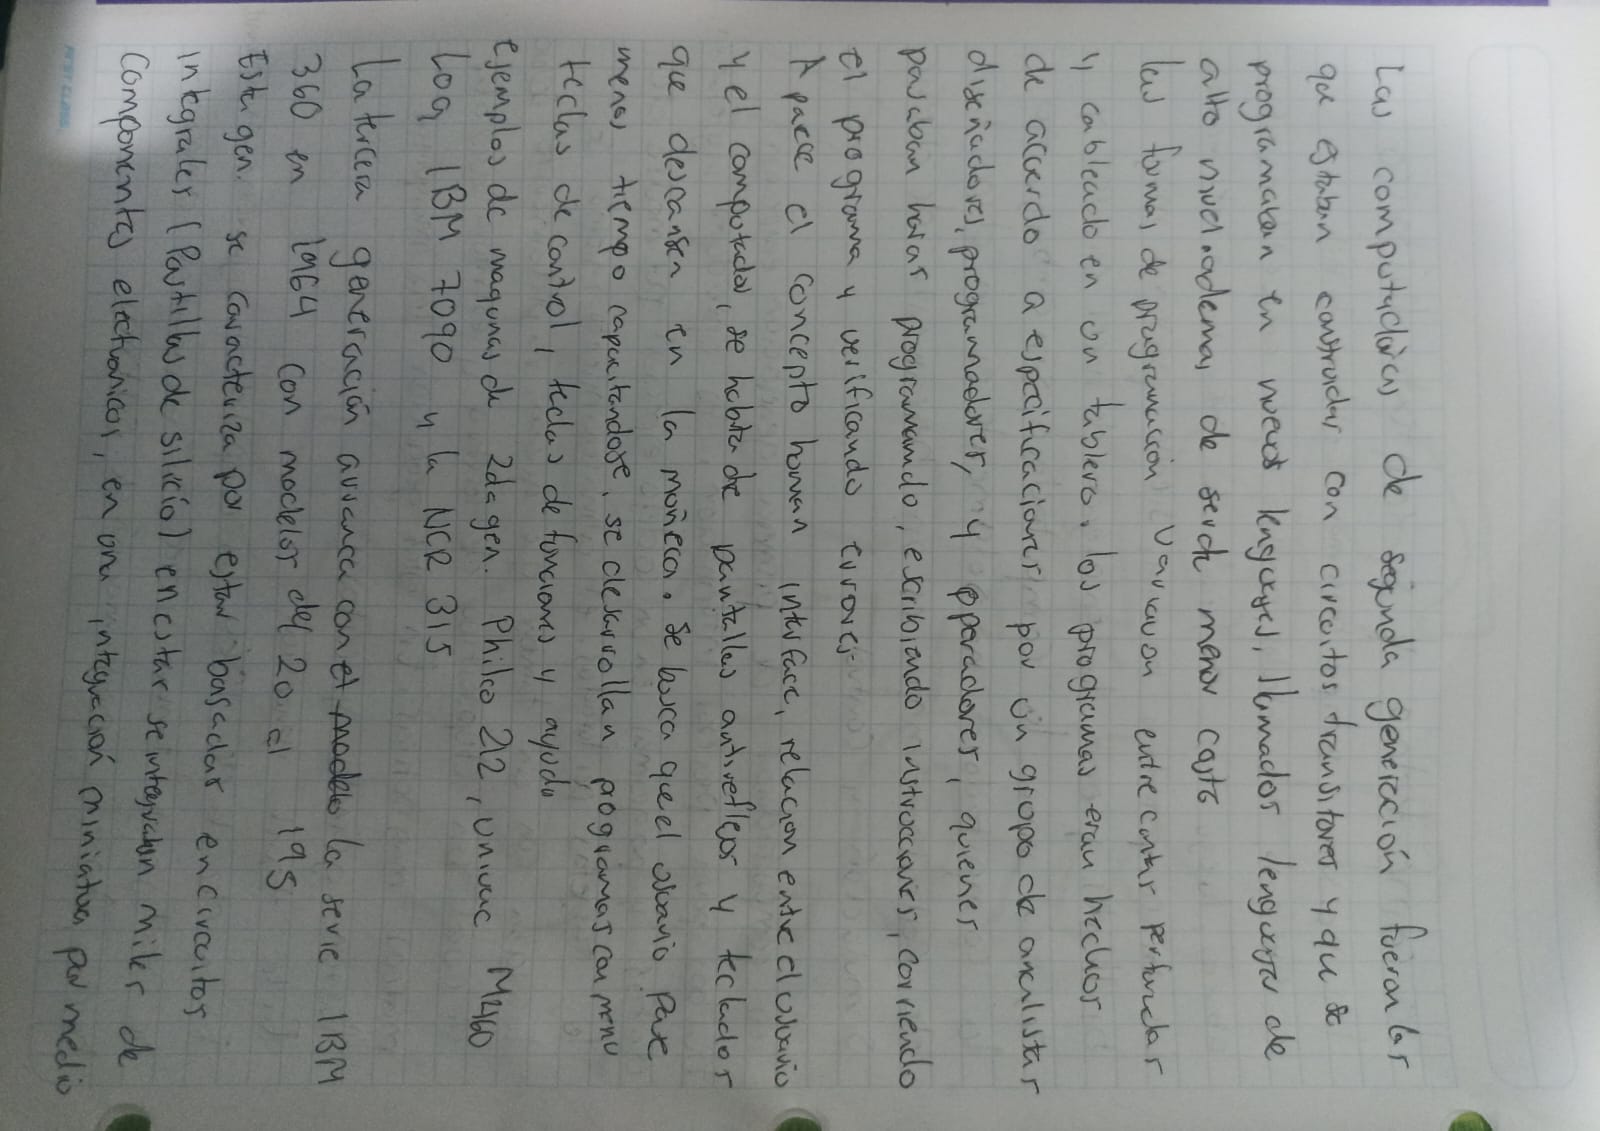 Las computadoras de segunda generación fueron las
que estaban construidas con circuitos transitores y que se
programaban en nuevos lenguajes, llamados lenguajes de
alto nivel. ademas de ser de menor costo
las formas de programacion variaron entre cintas perforadas
y cableado en un tablero. los programas eran hechos
de acuerdo a especificaciones por un grupo de analistas
diseñadores, programadores, y operadores, quienes
pasaban horas programando, escribiendo instrucciones, corriendo
el programa y verificando errores
Aparece el concepto human interface, relacion entre el usuario
y el computador, se habla de pantallas antireflejos y teclados
que descansen en la moñeca. se busca que el usuario pase
menos tiempo capacitandose, se desarrollan programas con menu
teclas de control, teclas de funciones y ayuda
ejemplos de maquinas de 2da gen. Philco 212, univac M460
los IBM 7090 y la NCR 315
La tercera generación avanca con el modelo la serie IBM
360 en 1964 con modelos del 20 al 195
Esta gen. se caracteriza por estar basadas en circuitos
integrales (Pastillas de silicio) en estar se integraban miles de
componentes electronicos, en una integración miniatura por medio